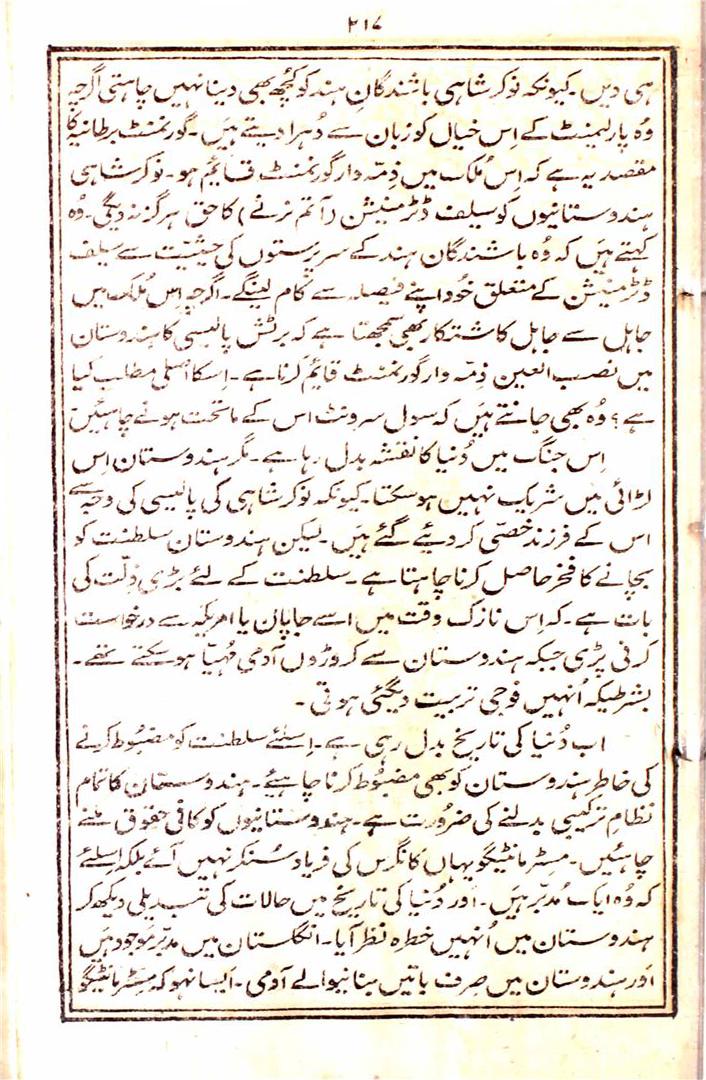 ۲۱۷
ہی دیں۔ کیونکہ نوکرشاہی باشندگانِ ہند کو کچھ بھی دینا نہیں چاہتی اگرچہ
وُہ پارلیمنٹ کے اِس خیال کو زبان سے دُہرا دیتے ہیَں۔ گورنمنٹ برطانیہ کا
مقصد یہ ہے کہ اِس مُلک میں ذِمّہ وار گورنمنٹ قائم ہو۔ نوکرشاہی
ہندوستانیوں کو سیلف ڈٹرمنیشن (آتم نرنے) کا حق ہرگز نہ دیگی۔ وُہ
کہتے ہیَں کہ وُہ باشندگان ہند کے سرپرستوں کی حیثیّت سے سیلف
ڈٹرمنیشن کے متعلق خُود اپنے فیصلہ سے کام لینگے۔ اگرچہ اِس مُلک میں
جاہل سے جاہل کاشتکار بھی سمجھتا ہے کہ برٹش پالیسی کا ہندوستان
میں نصب العین ذِمّہ وار گورنمنٹ قائم کرنا ہے۔ اِسکا اصلی مطلب کیا
ہے؟ وُہ بھی جانتے ہیَں کہ سول سرونٹ اس کے ماتحت ہونے چاہئیں
اِس جنگ میں دُنیا کا نقشہ بدل رہا ہے۔ مگر ہندوستان اِس
لڑائی میں شریک نہیں ہو سکتا۔ کیونکہ نوکرشاہی کی پالیسی کی وجہ سے
اس کے فرزند خصّی کر دیئے گئے ہیَں۔ لیکن ہندوستان سلطنت کو
بچانے کا فخر حاصل کرنا چاہتا ہے۔ سلطنت کے لئے بڑی ذِلّت کی
بات ہے۔ کہ اِس نازک وقت میں اسے جاپان یا امریکہ سے درخواست
کرنی پڑی جبکہ ہندوستان سے کروڑوں آدمی مُہیّا ہو سکتے تھے۔
بشرطیکہ اُنہیں فوجی تربیت دیگئی ہوتی۔
اب دُنیا کی تاریخ بدل رہی ہے۔ اِسلئے سلطنت کو مضبُوط کرنے
کی خاطر ہندوستان کو بھی مضبُوط کرنا چاہیئے۔ ہندوستان کا تمام
نظامِ ترکیبی بدلنے کی ضرُورت ہے۔ ہندوستانیوں کو کافی حقوق ملنے
چاہئیں۔ مسٹر مانٹیگو یہاں کانگرس کی فریاد سُنکر نہیں آئے بلکہ اِسلئے
کہ وُہ ایک مُدبّر ہیَں۔ اَور دُنیا کی تاریخ میں حالات کی تبدیلی دیکھ کر
ہندوستان میں اُنہیں خطرہ نظر آیا۔ انگلستان میں مدبّر موجود ہیَں
اَور ہندوستان میں صِرف باتیں بنانیوالے آدمی۔ اَیسا نہو کہ مسٹر مانٹیگو